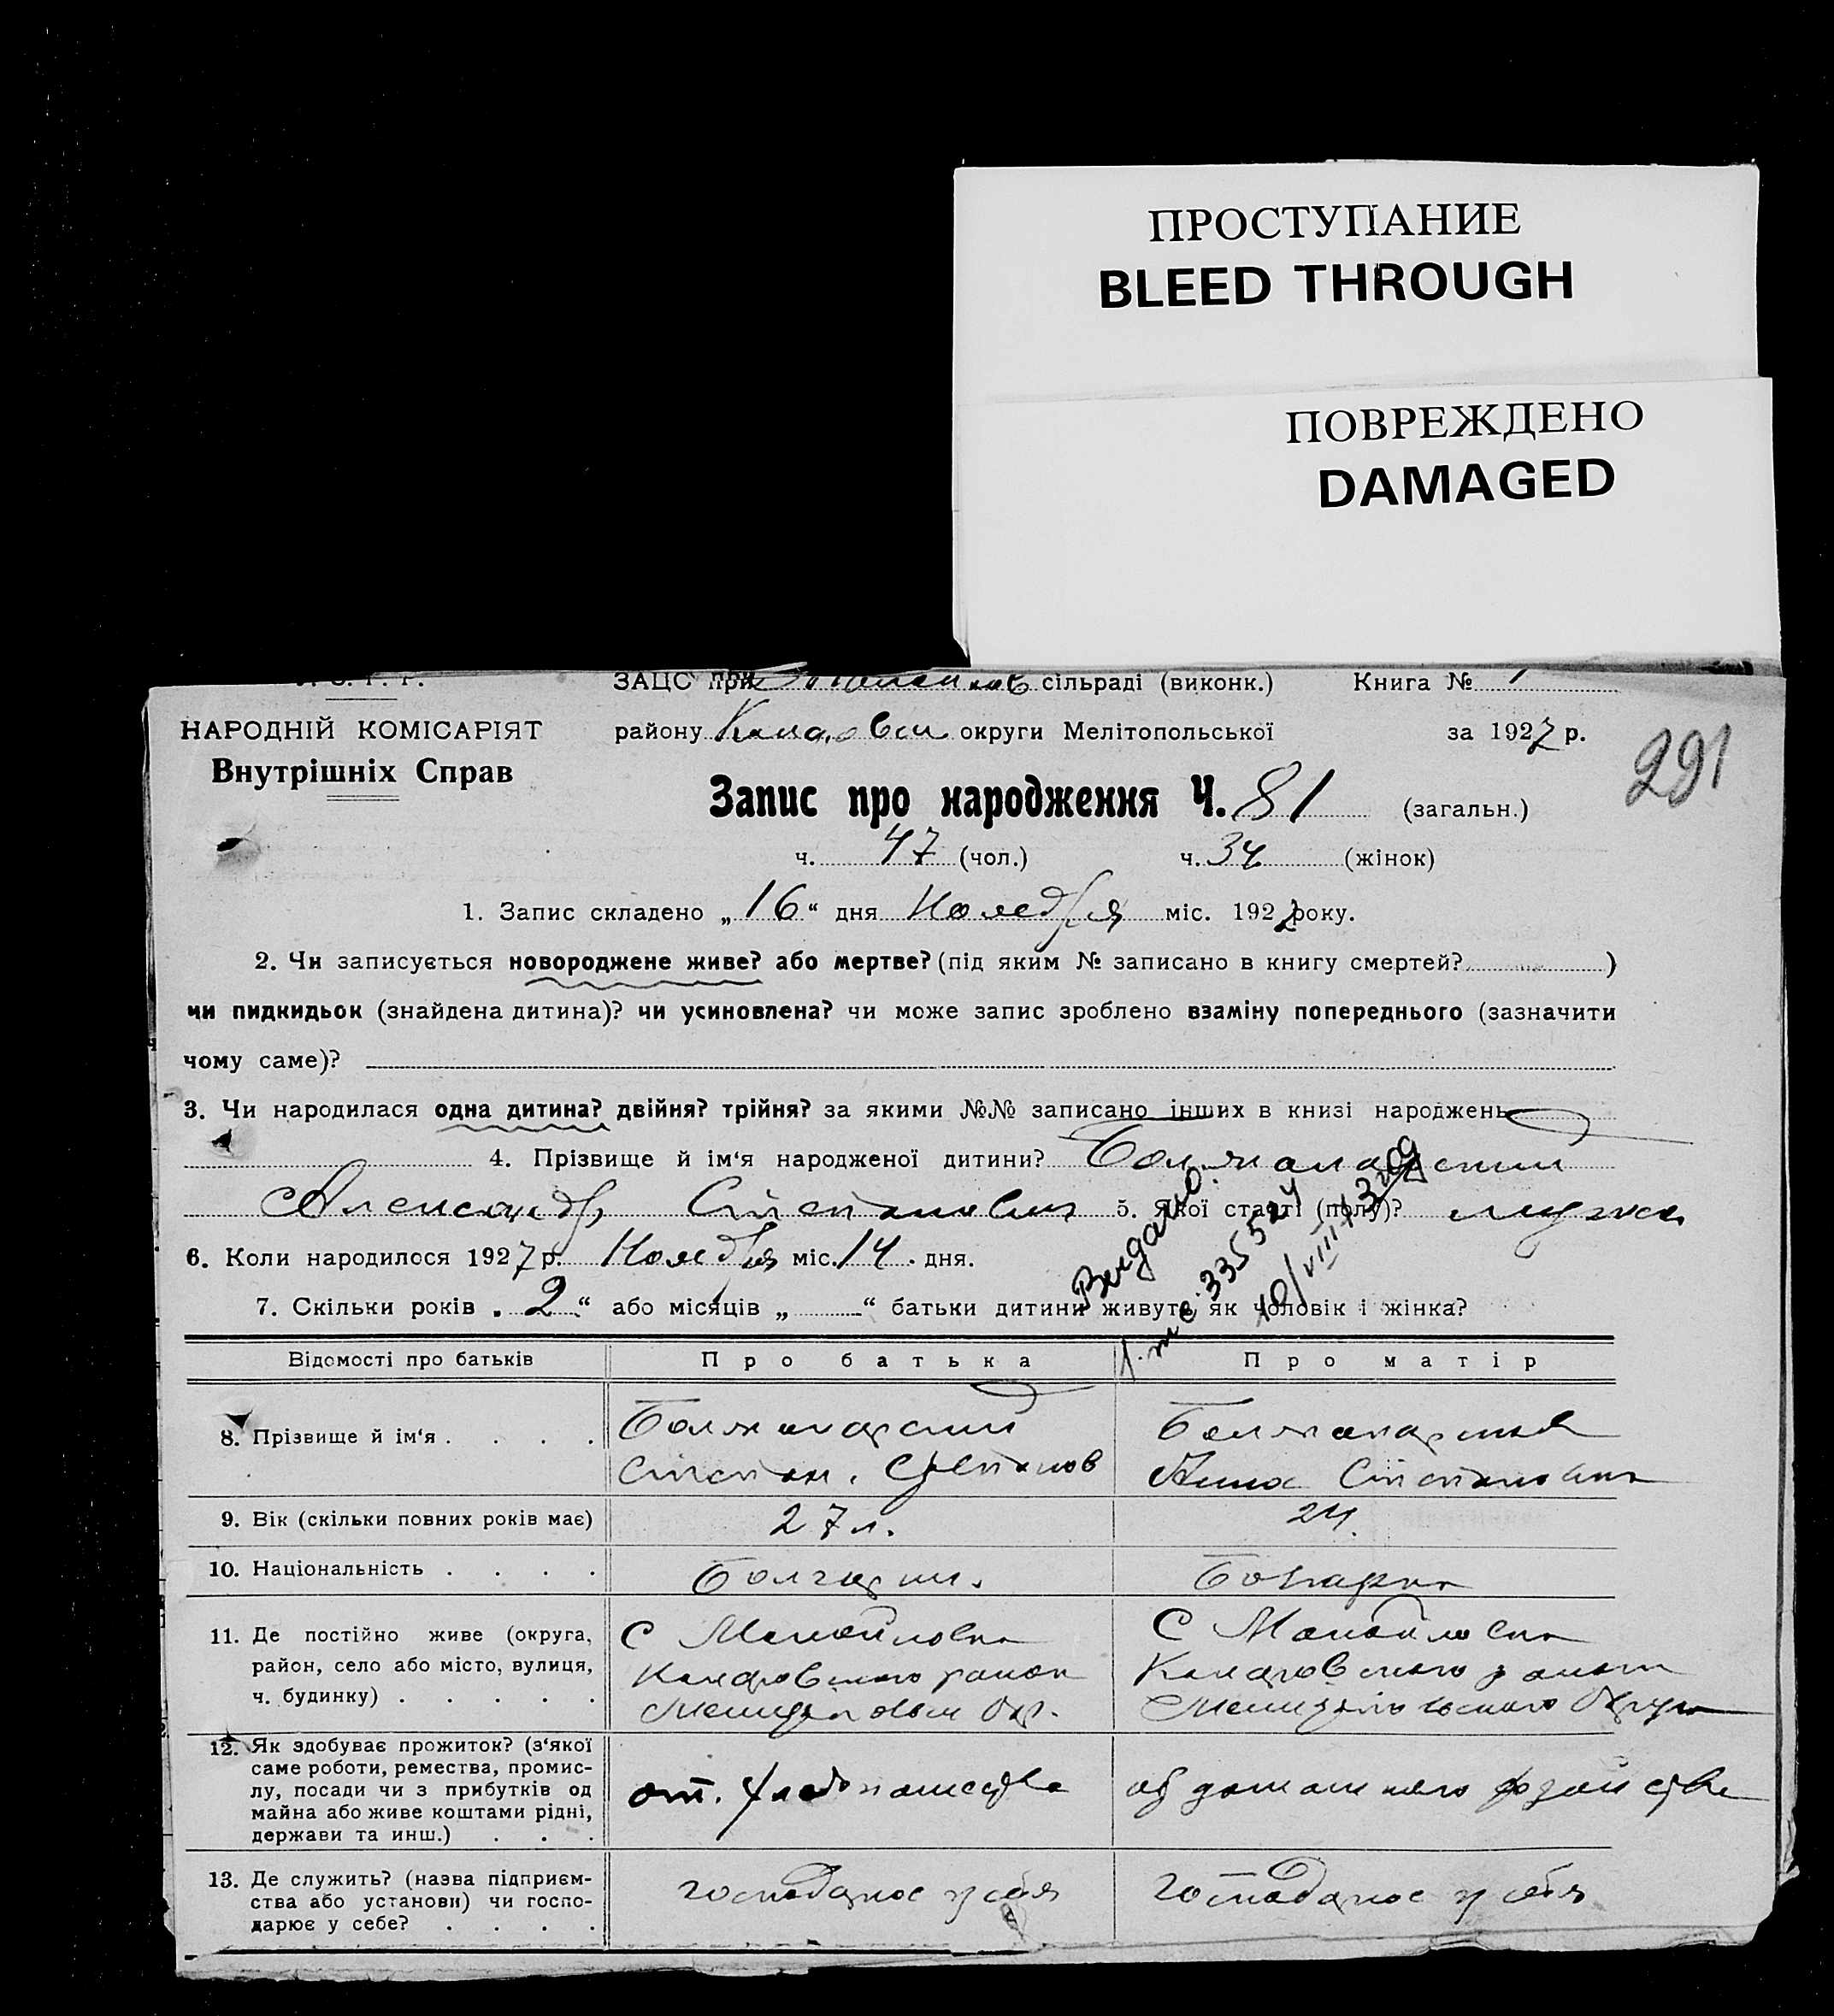 ПРОСТУПАНИЕ
BLEED THROUGH
ПОВРЕЖДЕНО
DAMAGED
ЗАЦС при сільраді (виконк.) Книга №
НАРОДНІЙ КОМІСАРІЯТ району округи Мелітопольської за 1927 р.
Внутрішніх Справ
291
Запис про народження Ч. 81 (загальн.)
ч. 47 (чол.) ч. 34 (жінок)
1. Запис складено „16“ дня Ноября міс. 1927 року.
2. Чи записується новороджене живе? або мертве? (під яким № записано в книгу смертей? )
чи пидкидьок (знайдена дитина)? чи усиновлена? чи може запис зроблено взаміну попереднього (зазначити
чому саме)?
3. Чи народилася одна дитина? двійня? трійня? за якими №№ записано інших в книзі народжень
4. Прізвище й ім‘я народженої дитини?
Александр Степанович 5. Якої статті (полу)? мужск
6. Коли народилося 1927 р. Ноября міс. 14 дня.
7. Скільки років „2“ або місяців „ “ батьки дитини живуть як чоловік і жінка?
335524
Відомості про батьків Про батька Про матір
8. Прізвище й ім‘я
Степан Степанов Анна Степановна
9. Вік (скільки повних років має) 27 л. 24
10. Національність Болгарин. Болгарка
11. Де постійно живе (округа, С Манойловка С Манойловка
район, село або місто, вулиця, района района
ч. будинку) Окр. Округа
12. Як здобуває прожиток? (з‘якої
саме роботи, ремества, промис-
лу, посади чи з прибутків од от. хлебопашества от домашнего хозяйства
майна або живе коштами рідні,
держави та инш.)
13. Де служить? (назва підприєм-
ства або установи) чи госпо- господарює у себя господарює у себя
дарює у себе?